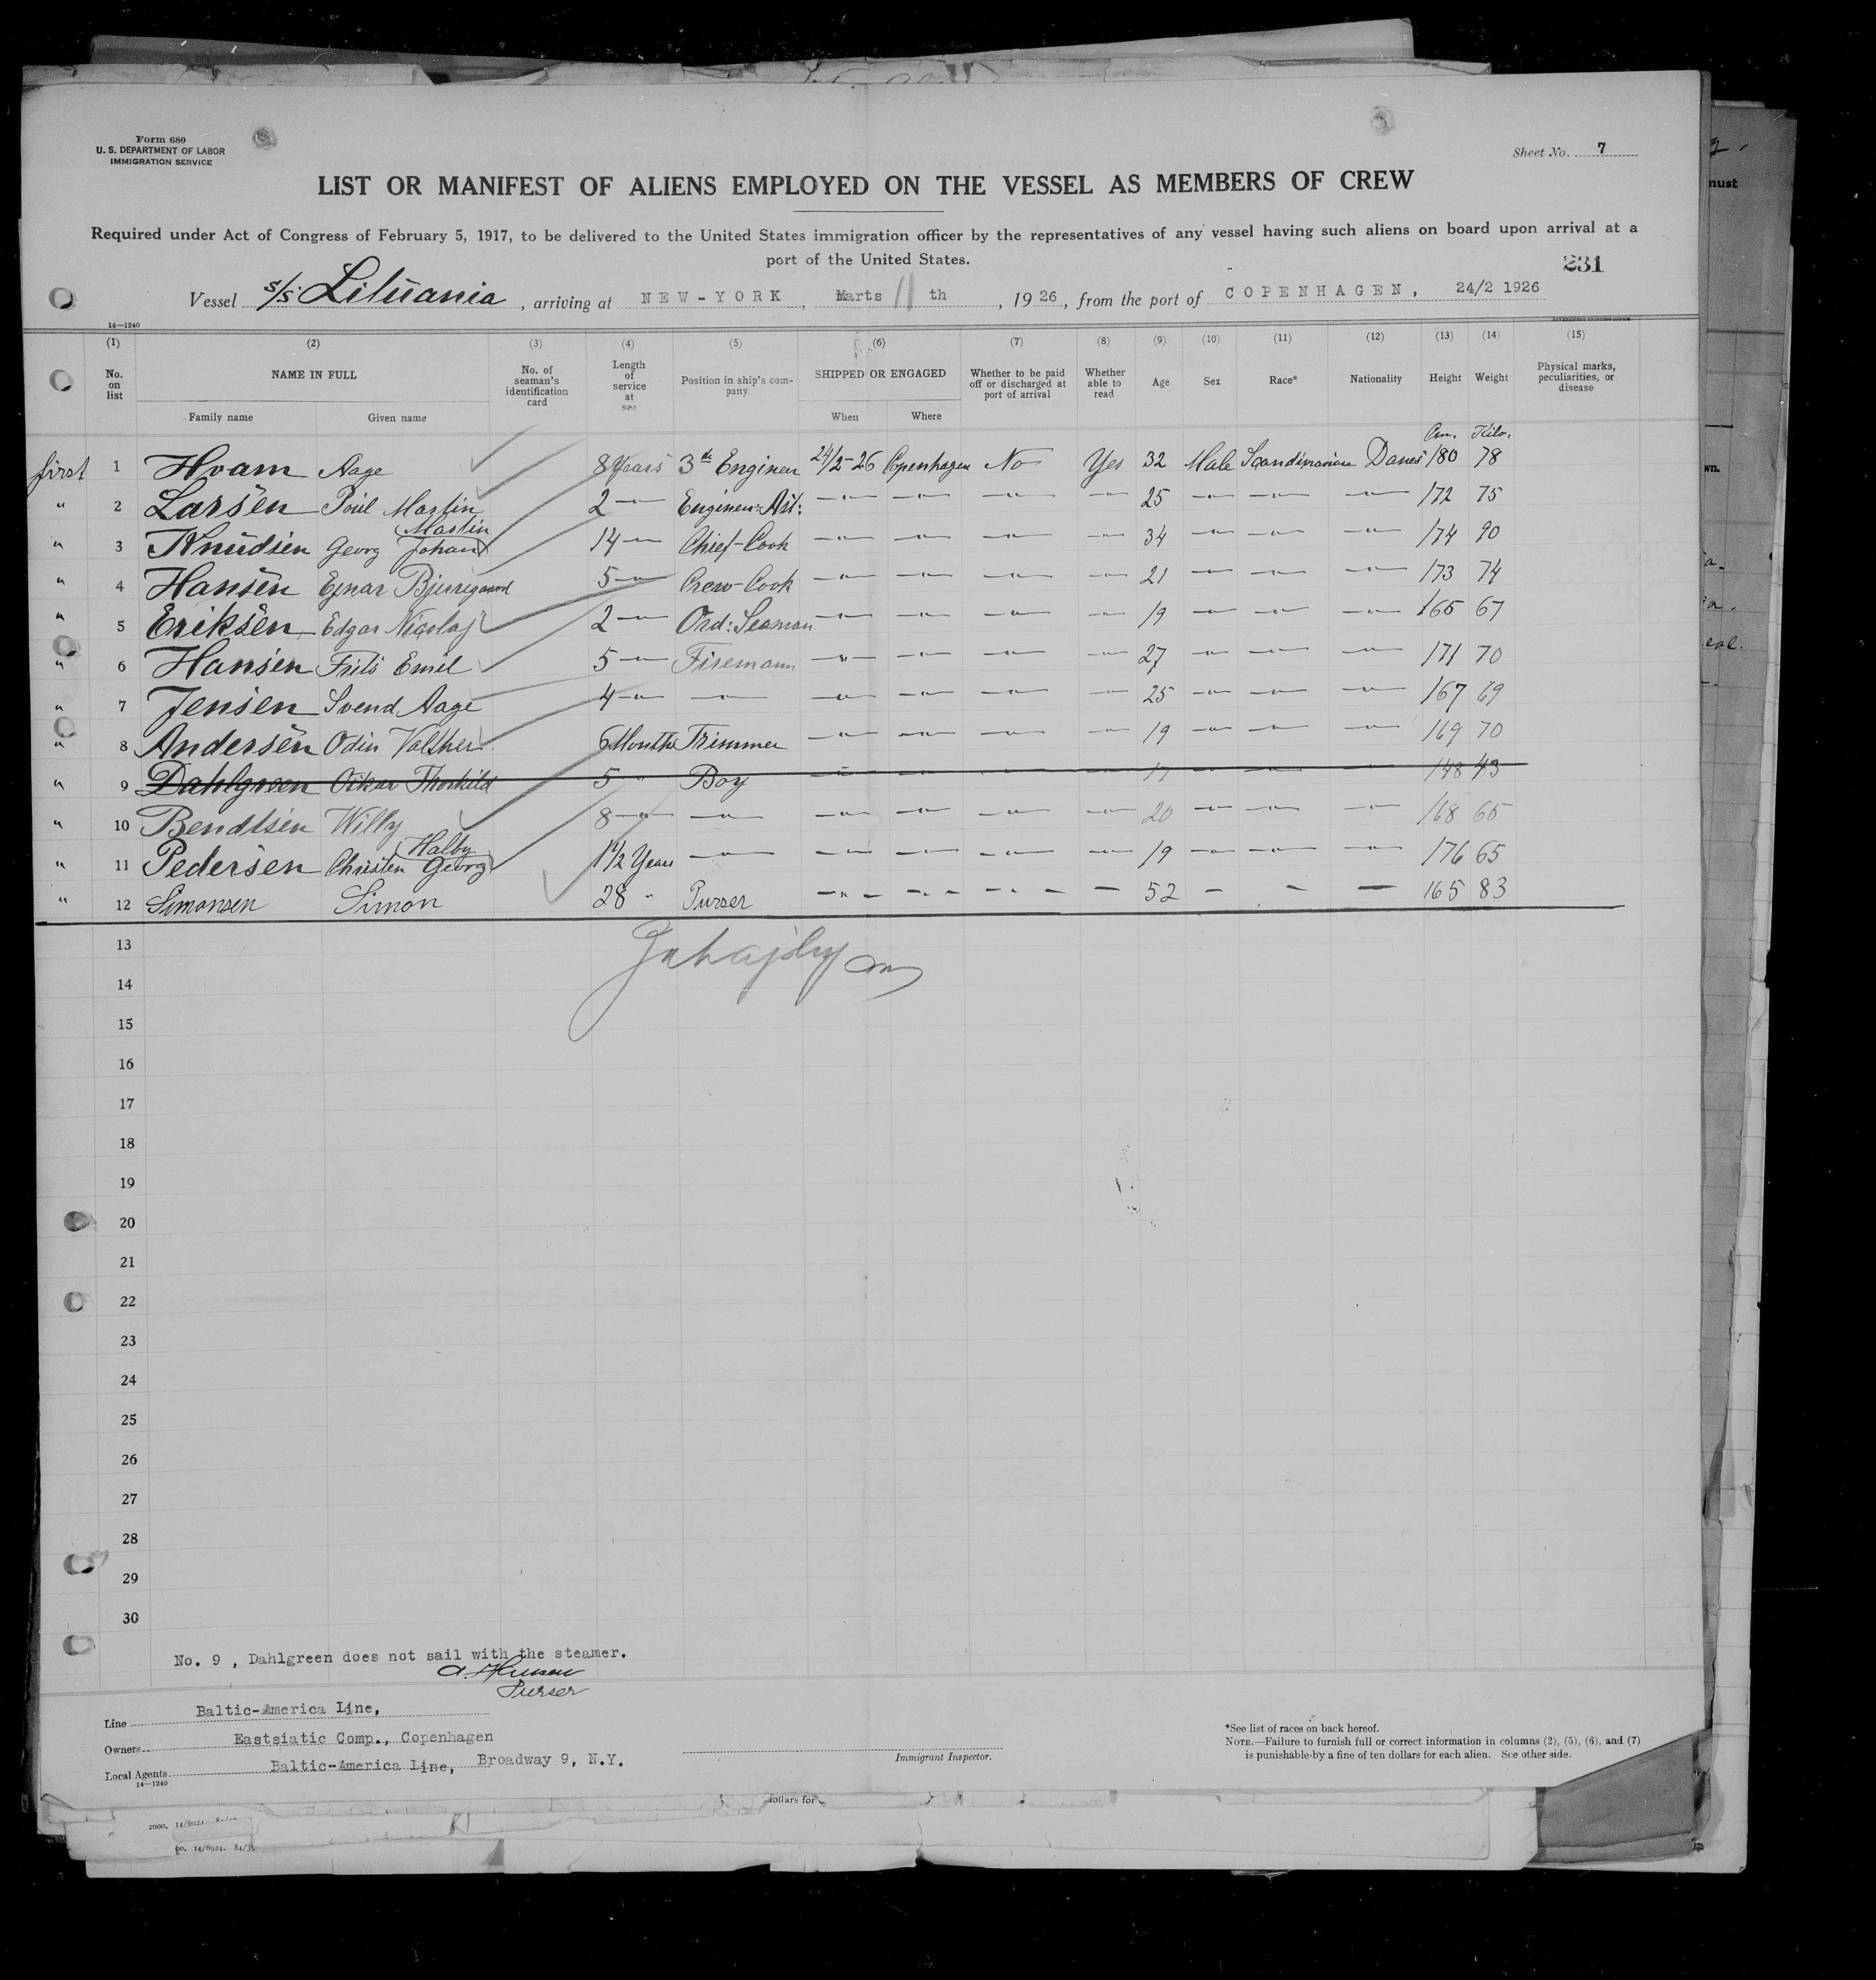 Form 680
U. S. DEPARTMENT OF LABOR
IMMIGRATION SERVICE
Sheet No. 7
LIST OR MANIFEST OF ALIENS EMPLOYED ON THE VESSEL AS MEMBERS OF CREW
Required under Act of Congress of February 5, 1917, to be delivered to the United States immigration officer by the representatives of any vessel having such aliens on board upon arrival at a
port of the United States.
231
Vessel s/s Lituania, arriving at NEW-YORK, Marts 11 th, 1926, from the port of COPENHAGEN, 24/2 1926
14—1240
(1) (2) (3) (4) (5) (6) (7) (8) (9) (10) (11) (12) (13) (14) (15)
No. on list NAME IN FULL Family name Given name No. of seaman's identification card Length of service at sea Position in ship's company SHIPPED OR ENGAGED When Where Whether to be paid off or discharged at port of arrival Whether able to read Age Sex Race* Nationality Height Weight Physical marks, peculiarities, or disease
Cm. Kilo.
first 1 Hvam Aage 8 Years 3th Engineer 24/2-26 Copenhagen No Yes 32 Male Scandinavian Danes 180 78
" 2 Larsen Poul Martin 2 —"— Engineer: Ast: —"— —"— —"— —"— 25 —"— —"— —"— 172 75
" 3 Knudsen Georg Johan (Martin) 14 —"— Chief-Cook —"— —"— —"— —"— 34 —"— —"— —"— 174 90
" 4 Hansen Ejnar Bjerregaard 5 —"— Crew-Cook —"— —"— —"— —"— 21 —"— —"— —"— 173 74
" 5 Eriksen Edgar Nicolaj 2 —"— Ord: Seaman —"— —"— —"— —"— 19 —"— —"— —"— 165 67
" 6 Hansen Frits Emil 5 —"— Firemann —"— —"— —"— —"— 27 —"— —"— —"— 171 70
" 7 Jensen Svend Aage 4 —"— —"— —"— —"— —"— —"— 25 —"— —"— —"— 167 69
" 8 Andersen Odin Valther 6 Months Trimmer —"— —"— —"— —"— 19 —"— —"— —"— 169 70
" 9 Dahlgreen Oskar Thorkild 5 " Boy —"— —"— —"— —"— 17 —"— —"— —"— 148 43
" 10 Bendtsen Willy 8 —"— —"— —"— —"— —"— —"— 20 —"— —"— —"— 168 65
" 11 Pedersen Christen Georg (Halby) 1 1/2 Years —"— —"— —"— —"— —"— 19 —"— —"— —"— 176 65
" 12 Simonsen Simon 28 " Purser —"— —"— —"— — 52 — — — 165 83
13
14
15
16
17
18
19
20
21
22
23
24
25
26
27
28
29
30
No. 9 , Dahlgreen does not sail with the steamer.
Purser
Line Baltic-America Line,
Owners Eastsiatic Comp., Copenhagen
Local Agents Baltic-America Line, Broadway 9, N.Y.
14—1240
Immigrant Inspector.
*See list of races on back hereof.
NOTE.—Failure to furnish full or correct information in columns (2), (5), (6), and (7)
is punishable by a fine of ten dollars for each alien. See other side.
dollars for
2000. 14/6924.
00. 14/6924. 84/3